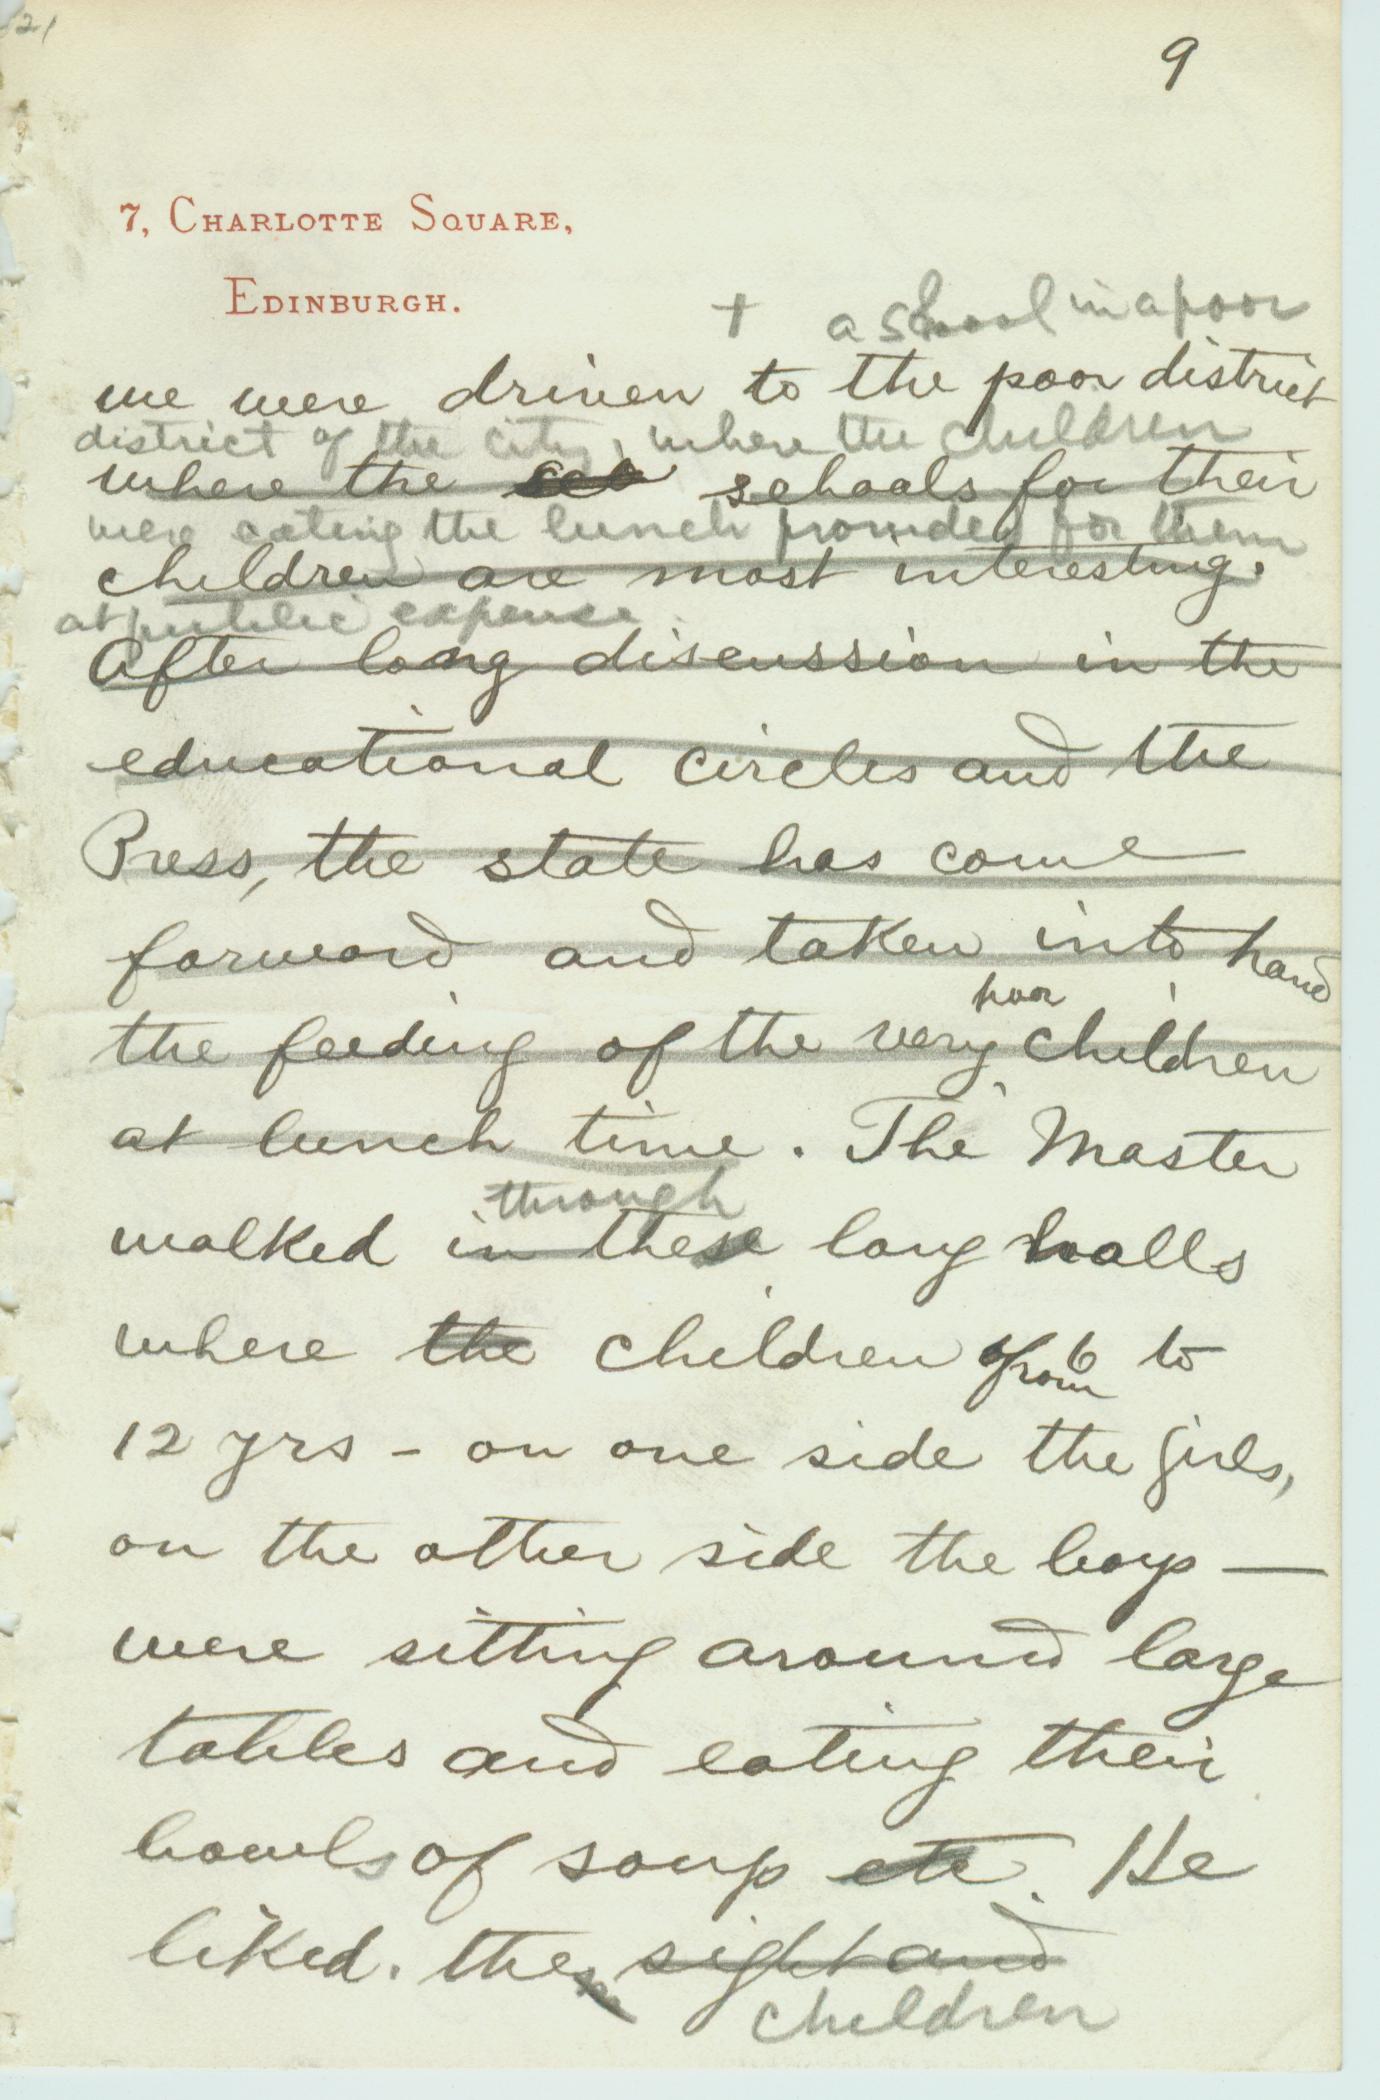 521
9
7, Charlotte Square,
Edinburgh.
+ a school in a poor
we were driven to the poor district
district of the city, where the children
where the sch schools for their
were eating the lunch provided for them
children are most interesting.
at public expense.
After long discussion in the
educational circles and the
Press, the state has come
forward and taken into hand
poor
the feeding of the very children
at lunch time. The Master
through
walked in these long halls
where the children from 6 to
12 yrs - on one side the girls,
on the other side the boys —
were sitting around large
tables and eating their
bowls of soup etc. He
liked. the sight and
children